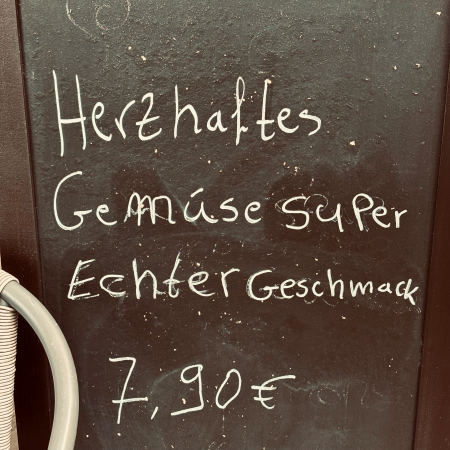 Herzhaftes
Gemúse super
Echter Geschmack
7,90€